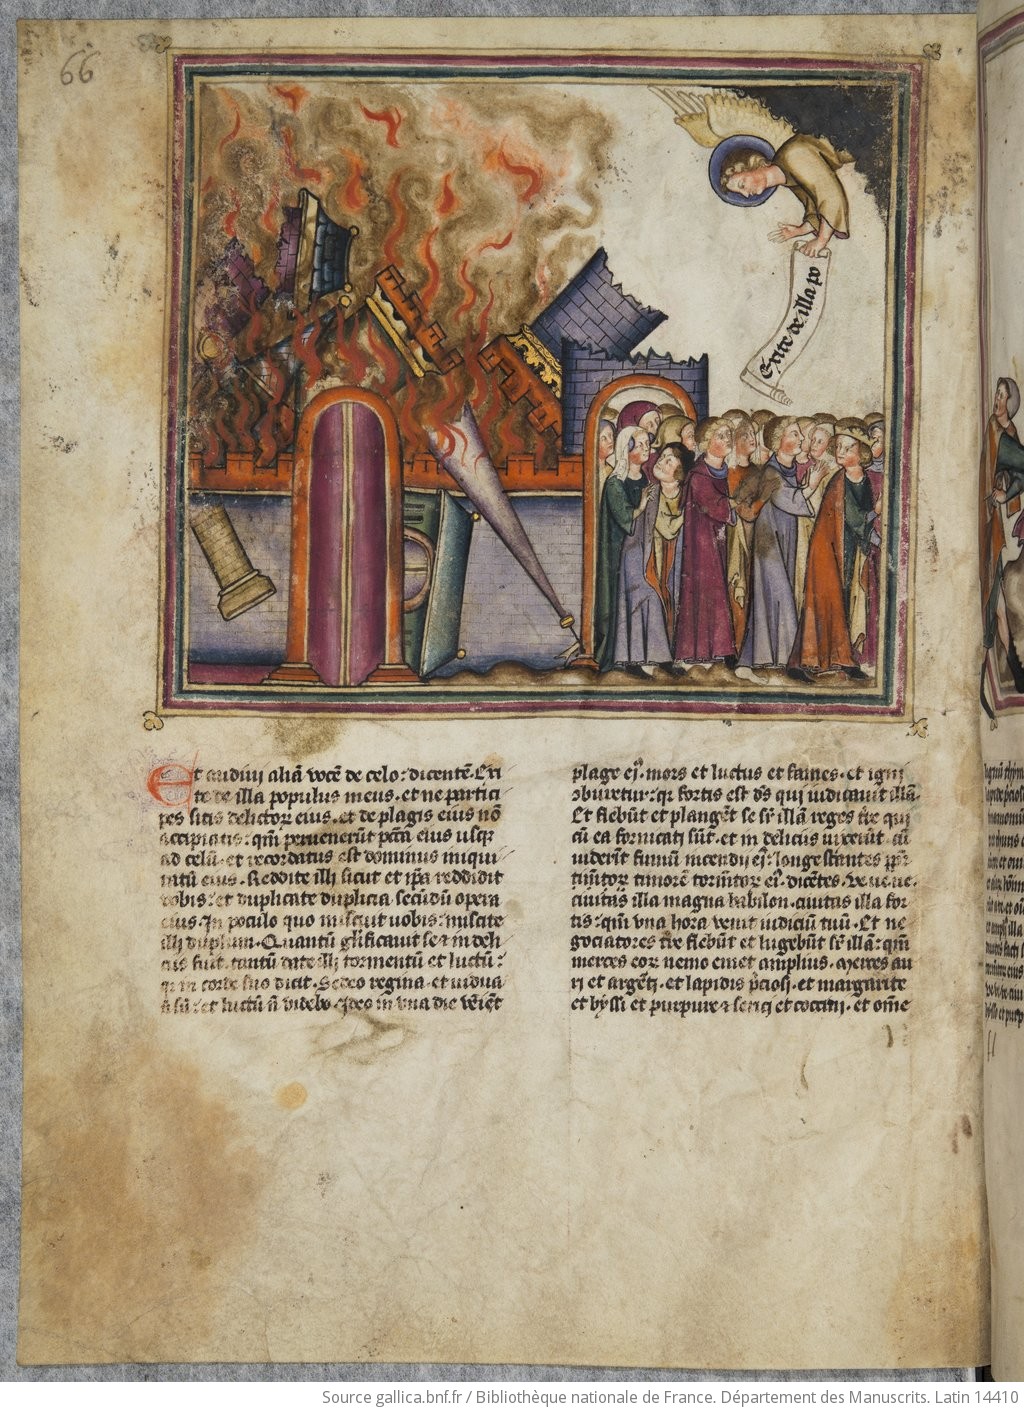 66
Exite de illa po
Et audiui aliā vocē de celo: dicentē. Exi
te de illa populus meus. et ne partici
pes sitis delictoꝝ eius. et de plagis eius nō
accipiatis: qm̄ peruenerūt pctā eius usqꝫ
ad celū. et recordatus est dominus iniqui
tatū eius. Reddite illi sicut et ip̄a reddidit
vobis: et duplicate duplicia secūdū opera
eius. In poculo quo miscuit uobis: miscite
illi duplum. Quantū glīficauit se et in deli
ciis fuit. tantū date illi tormentū et luctū:
qꝛ in corde suo dicit. Sedeo regina. et uidua
ñ sū: et luctū ñ videbo. Ideo in vna die veīēt
plage eiꝰ. mors et luctus et fames. et igni
ↄburetur: qꝛ fortis est dꝰs qui iudicauit illā.
Et flebūt et plangēt se sꝑ illā reges tꝛe qui
cū ea fornicati sūt. et in deliciis uixerūt. cū
uiderīt fumū incendij eiꝰ: longe stantes ꝓpꝛ
timoꝛē toꝛmētoꝝ eiꝰ. dicētes. Ve ue ue.
ciuitas illa magna babilon. ciuitas illa for
tis: qm̄ vna hora venit iudiciū tuū. Et ne
gociatores tꝛe flebūt et lugebūt sꝑ illā: qm̄
merces eoꝝ nemo emet amplius. Merces au
ri et argēti. et lapidis p̄ciosi. et margarite
et byssi et purpure et serici et coccini. et om̄e
Source gallica.bnf.fr / Bibliothèque nationale de France. Département des Manuscrits. Latin 14410